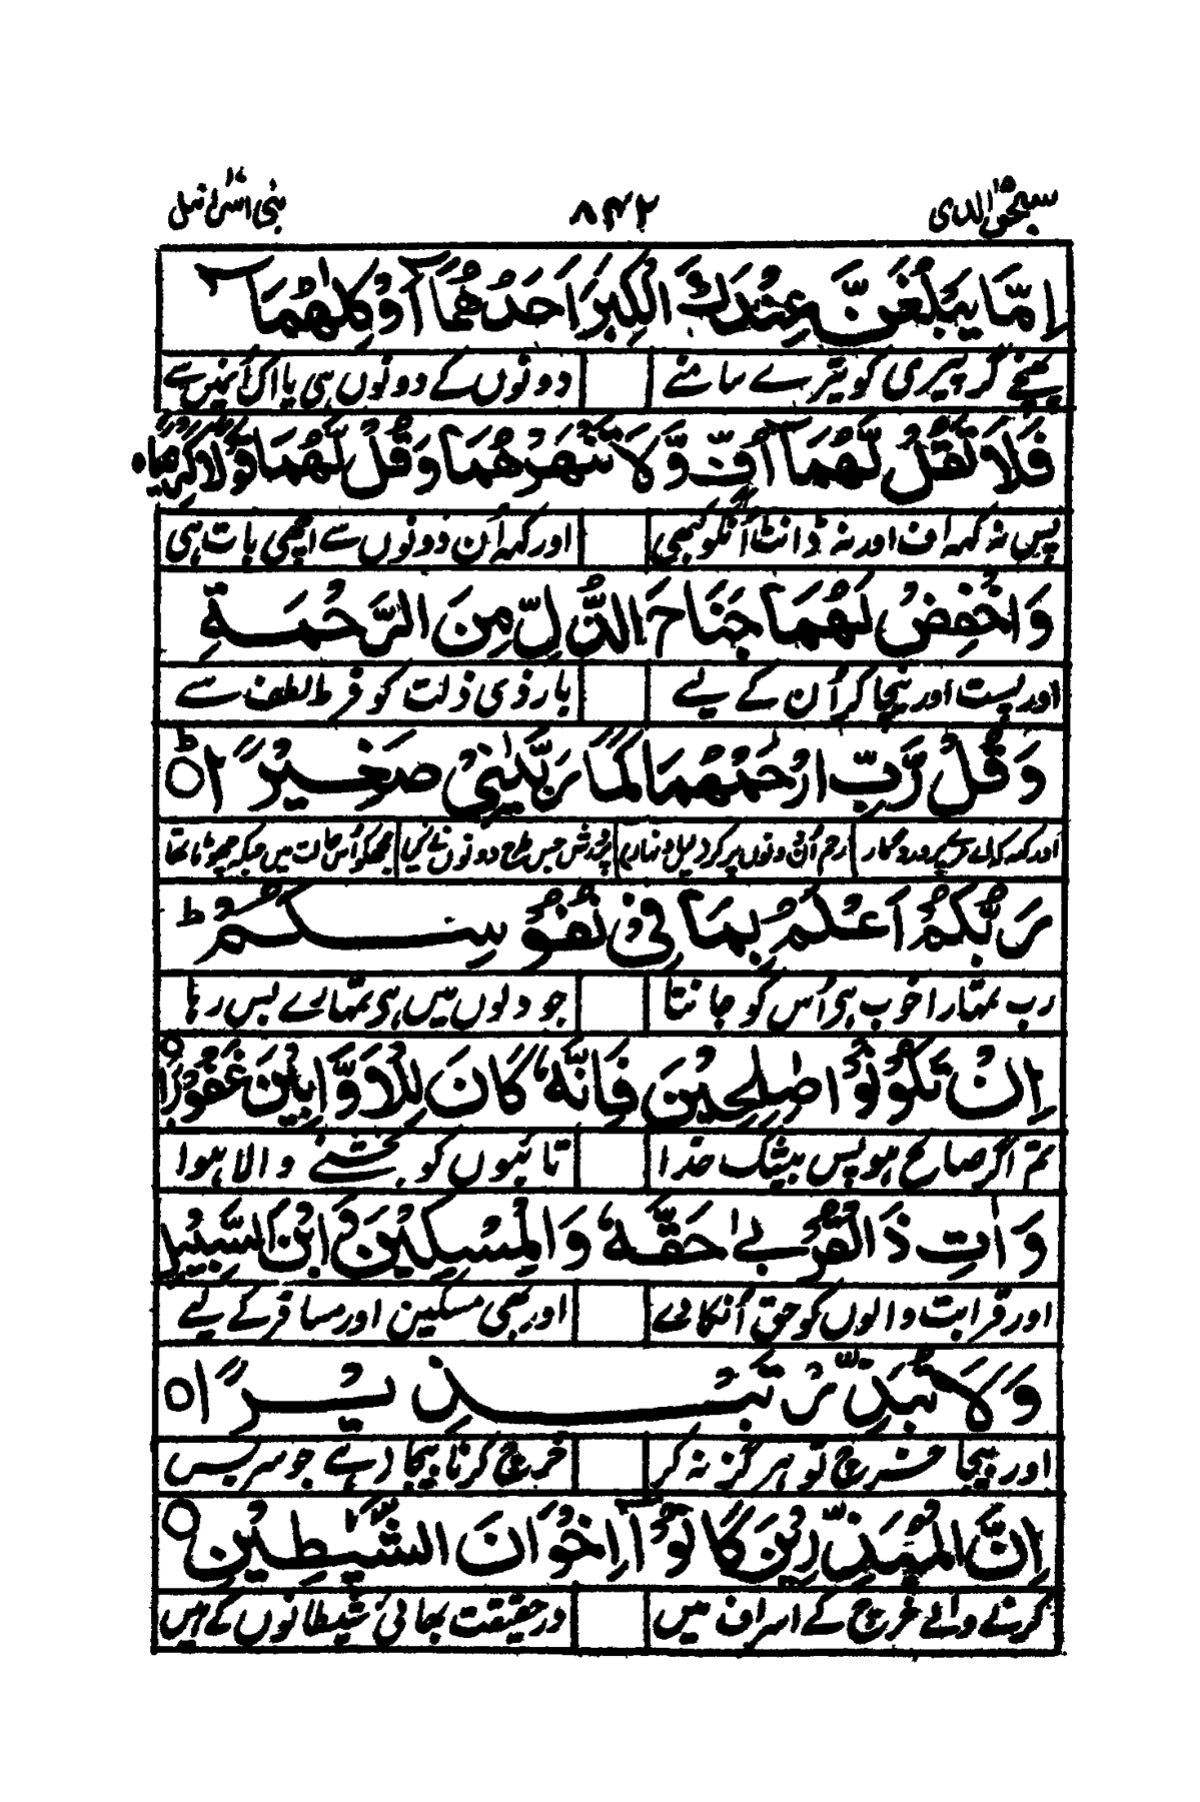 سبحٰن الذی ۱۵ ۸۴۲ بنی اسرائیل ۱۷
اِمَّا يَبْلُغَنَّ عِنْدَكَ الْكِبَرَ اَحَدُهُمَآ اَوْ كِلٰهُمَا
گر پیری کو تیرے سامنے دونوں کے دونوں ہی یا اک اُنمیں سے
فَلَا تَقُلْ لَّهُمَآ اُفٍّ وَّلَا تَنْهَرْهُمَا وَقُلْ لَّهُمَا قَوْلًا كَرِيْمًا
پس نہ کہہ اُف اور نہ ڈانٹ اُنکو کبھی اور کہہ اُن دونوں سے اچھی بات ہی
وَاخْفِضْ لَهُمَا جَنَاحَ الذُّلِّ مِنَ الرَّحْمَةِ
اور پست اور نیچا کر اُن کے لیے بازوی ذلت کو فرط لطف سے
وَقُلْ رَّبِّ ارْحَمْهُمَا كَمَا رَبَّيٰنِيْ صَغِيْرًا ط
اور کہہ کہ اے میرے پروردگار رحم اُن دونوں پر کر پرورش جس طرح دونوں نے کی مجھکو اُس حالت میں جبکہ چھوٹا تھا
رَبُّكُمْ اَعْلَمُ بِمَا فِيْ نُفُوْسِكُمْ ط
رب تمہارا خوب ہی اُس کو جانتا جو دلوں میں ہی تمہارے بس رہا
اِنْ تَكُوْنُوْا صٰلِحِيْنَ فَاِنَّهٗ كَانَ لِلْاَوَّابِيْنَ غَفُوْرًا
تم اگر صالح ہو پس بیشک خدا تائبوں کو بخشنے والا ہوا
وَاٰتِ ذَا الْقُرْبٰى حَقَّهٗ وَالْمِسْكِيْنَ وَابْنَ السَّبِيْلِ
اور قرابت والوں کو حق اُنکا دے اور بھی مسکین اور مسافر کے لیے
وَلَا تُبَذِّرْ تَبْذِيْرًا
اور بیجا خرچ تو ہرگز نہ کر خرچ کرنا بیجا دہے جو سر بسر
اِنَّ الْمُبَذِّرِيْنَ كَانُوْٓا اِخْوَانَ الشَّيٰطِيْنِ
کرنے والے خرچ کے اسراف میں درحقیقت بھائی شیطانوں کے ہیں